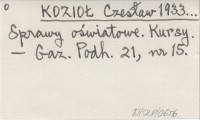 KOZIOŁ Czesław 1933...
Sprawy oświatowe. Kursy.
— Gaz. Podh. 21, nr 15.